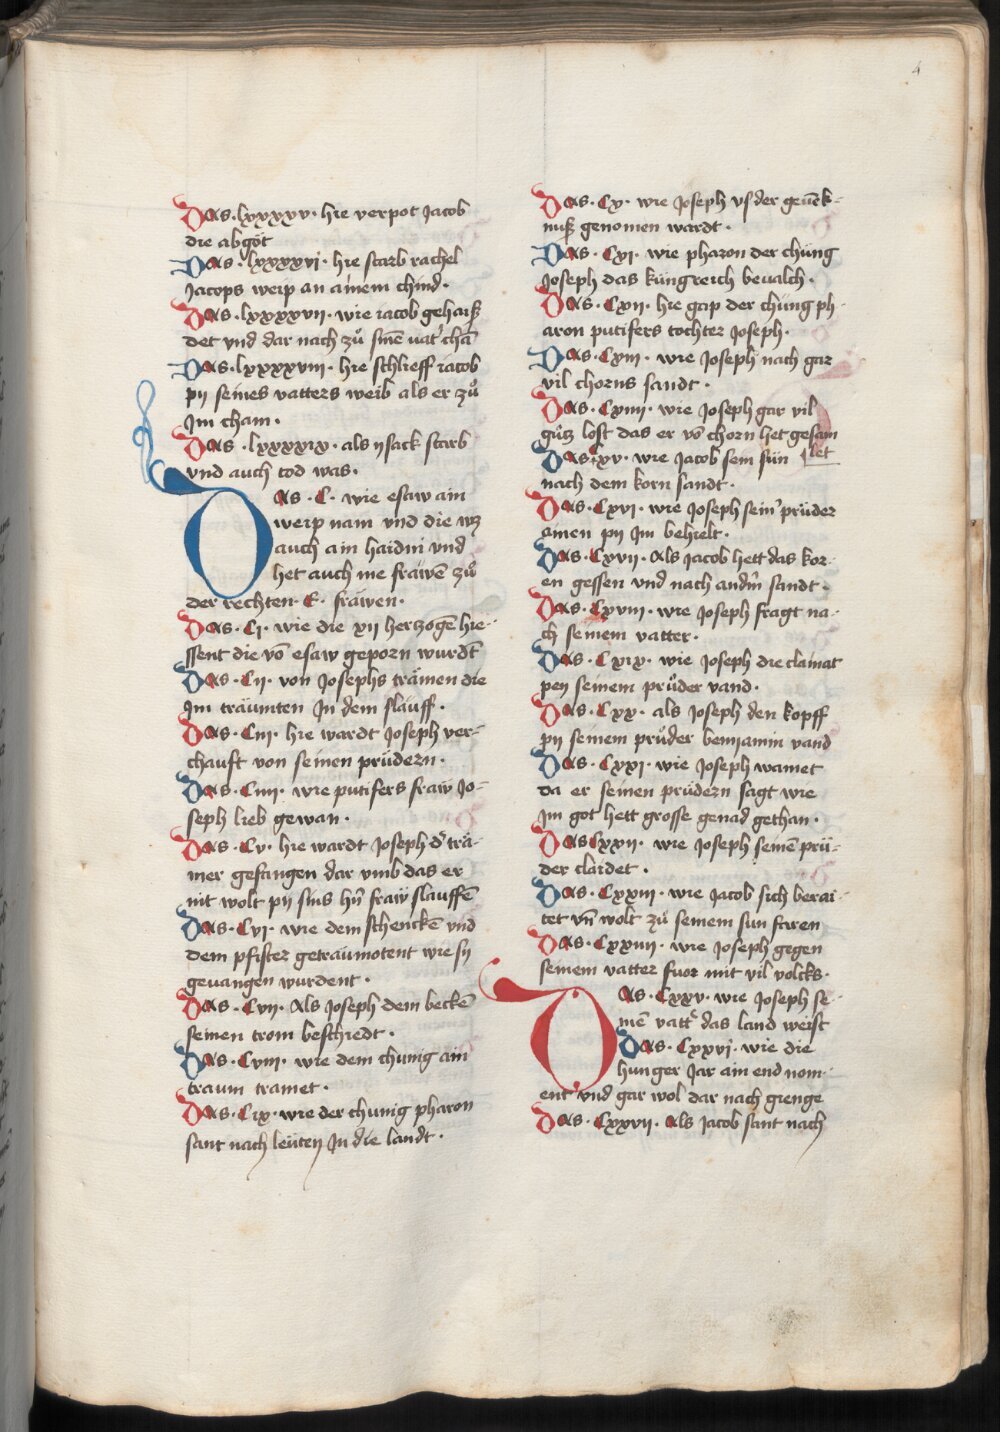 4
Das · lxxxxv · hie verpot Jacob
die abgöt
Das · lxxxxvj · hie starb rachel
Jacops weip an ainem chind ·
Das · lxxxxvii · wie iacob gehaiß
det vnd dar nach zů sinē vat' chā
Das · lxxxxviii · hie schlieff iacob
pij seines vatters weib als er zů
Im cham ·
Das · lxxxxix · als ysack starb
vnd auch tod was ·
Das · C · wie esaw ain
weip nam vnd die wz
auch ain haidni vnd
het auch me fräwē zů
der rechten · E · fräwen ·
Das · Cj · wie die xij hertzogē hie-
ssent die vō esaw geporn wurdēt
Das · Cij · von Josephs träмen die
Im träumten In dem slauff ·
Das · Ciij · hie wardt Joseph ver-
chauft von seinen prüdern ·
Das · Ciiij · wie putifers fraw Jo-
seph lieb gewan ·
Das · Cv · hie wardt Joseph d' trä-
mer gefangen dar vmb das er
nit wolt pij sins hn̄ fraw slauffē
Das · Cvj · wie dem schenckē vnd
dem pfister geträumotent wie sy
geuangen wurdent ·
Das · Cvij · Als Joseph dem beckē
seinen trom beschiedt ·
Das · Cviij · wie dem chunig ain
traum tramet ·
Das · Cix · wie der chunig pharon
sant nach leüten In die landt ·
Das · Cx · wie Joseph vs der geuēk-
nuß genomen wardt ·
Das · Cxj · wie pharon der chüng
Joseph das küngreich beualch ·
Das · Cxij · hie gap der chüng ph-
aron putifers tochter Joseph ·
Das · Cxiij · wie Joseph nach gar
vil chorns sandt ·
Das · Cxiiij · wie Joseph gar vil
gütz lost das er vō chorn het gesam
Das · Cxv · wie Jacob sein sün | let
nach dem korn sandt ·
Das · Cxvj · wie Joseph sein' prüder
ainen pij Im behielt ·
Das · Cxvij · Als Jacob hett das kor-
en gessen vnd nach andm̄ sandt ·
Das · Cxviij · wie Joseph fragt na-
ch seinem vatter ·
Das · Cxix · wie Joseph die clainat
pey seinem prüder vand ·
Das · Cxx · als Joseph den kopff
pij seinem prüder beniamin vand
Das · Cxxj · wie Joseph wainet
da er seinen prüdern sagt wie
Im got hett grosse genad gethan ·
Das Cxxij · wie Joseph seinē prü-
der claidet ·
Das · Cxxiij · wie Jacob sich berai-
tet vn̄ wolt zů seinem sun faren
Das · Cxxiiij · wie Joseph gegen
seinem vatter fuor mit vil volcks ·
Das · Cxxv · wie Joseph se-
inē vatt' das land weist
Das · Cxxvj · wie die
hunger Jar ain end nom-
ent vnd gar wol dar nach gienge
Das · Cxxvij · Als Jacob sant nach